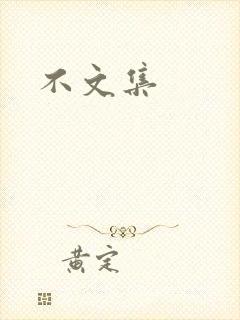 不文集
黄定